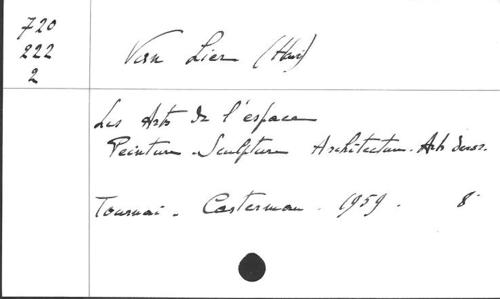 720
222
2
Van Lier (Henri)
Les Arts de l'espace
Peinture - Sculpture Architecture - Arts décor.
Tournai - Casterman - 1959 - 8°